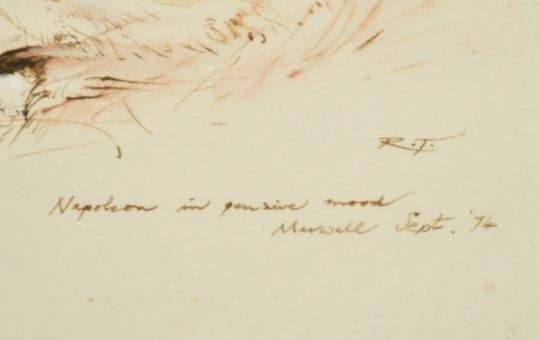 R.T.
Napoleon in pensive mood
Marwell Sept. '74